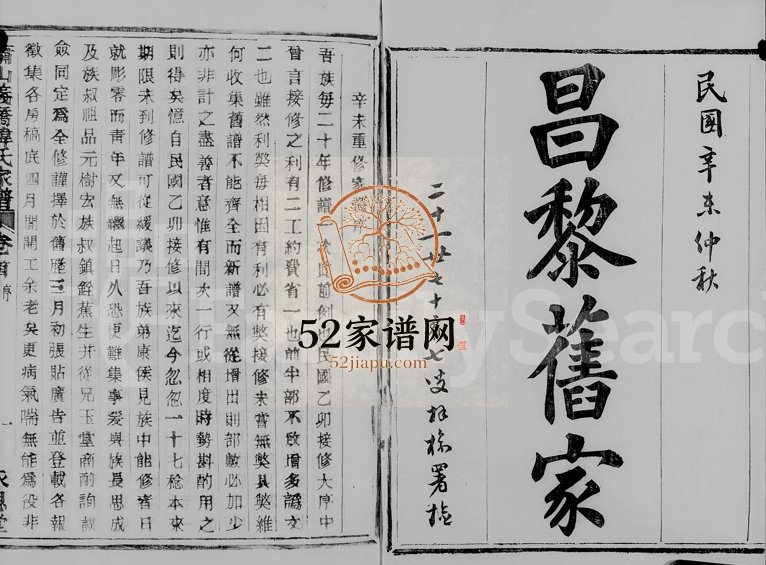 民國辛未仲秋
昌黎舊家
二十一世七十七叟樑署檢
辛未重修家譜序
吾族每二十年修譜一次此前例民國乙卯接修大序中
曾言接修之利有二工約費省一也前半部不改增多譌文
二也雖然利弊每相因有利必有弊接修未嘗無弊其弊維
何收集舊譜不能齊全而新譜又無從增出則部數必加少
亦非計之盡善者意惟有間次一行或相度時勢斟酌用之
則得矣憶自民國乙卯接修以來迄今忽忽一十七稔本來
期限未到修譜可從緩議乃吾族弟康侯見族中能修者日
就彫零而青年又無繼起日久恐更難集事爰與族長思成
及族叔祖品元樹宏族叔鎮銓蕉生并從兄玉堂商酌詢謀
僉同定爲全修謹擇於舊歷三月初張貼廣告並登載各報
徵集各房稿底四月間開工余老矣更病氣喘無能爲役非
蕭山義橋韓氏家譜 卷首 序 一
52家谱网
52jiapu.com
FamilySearch